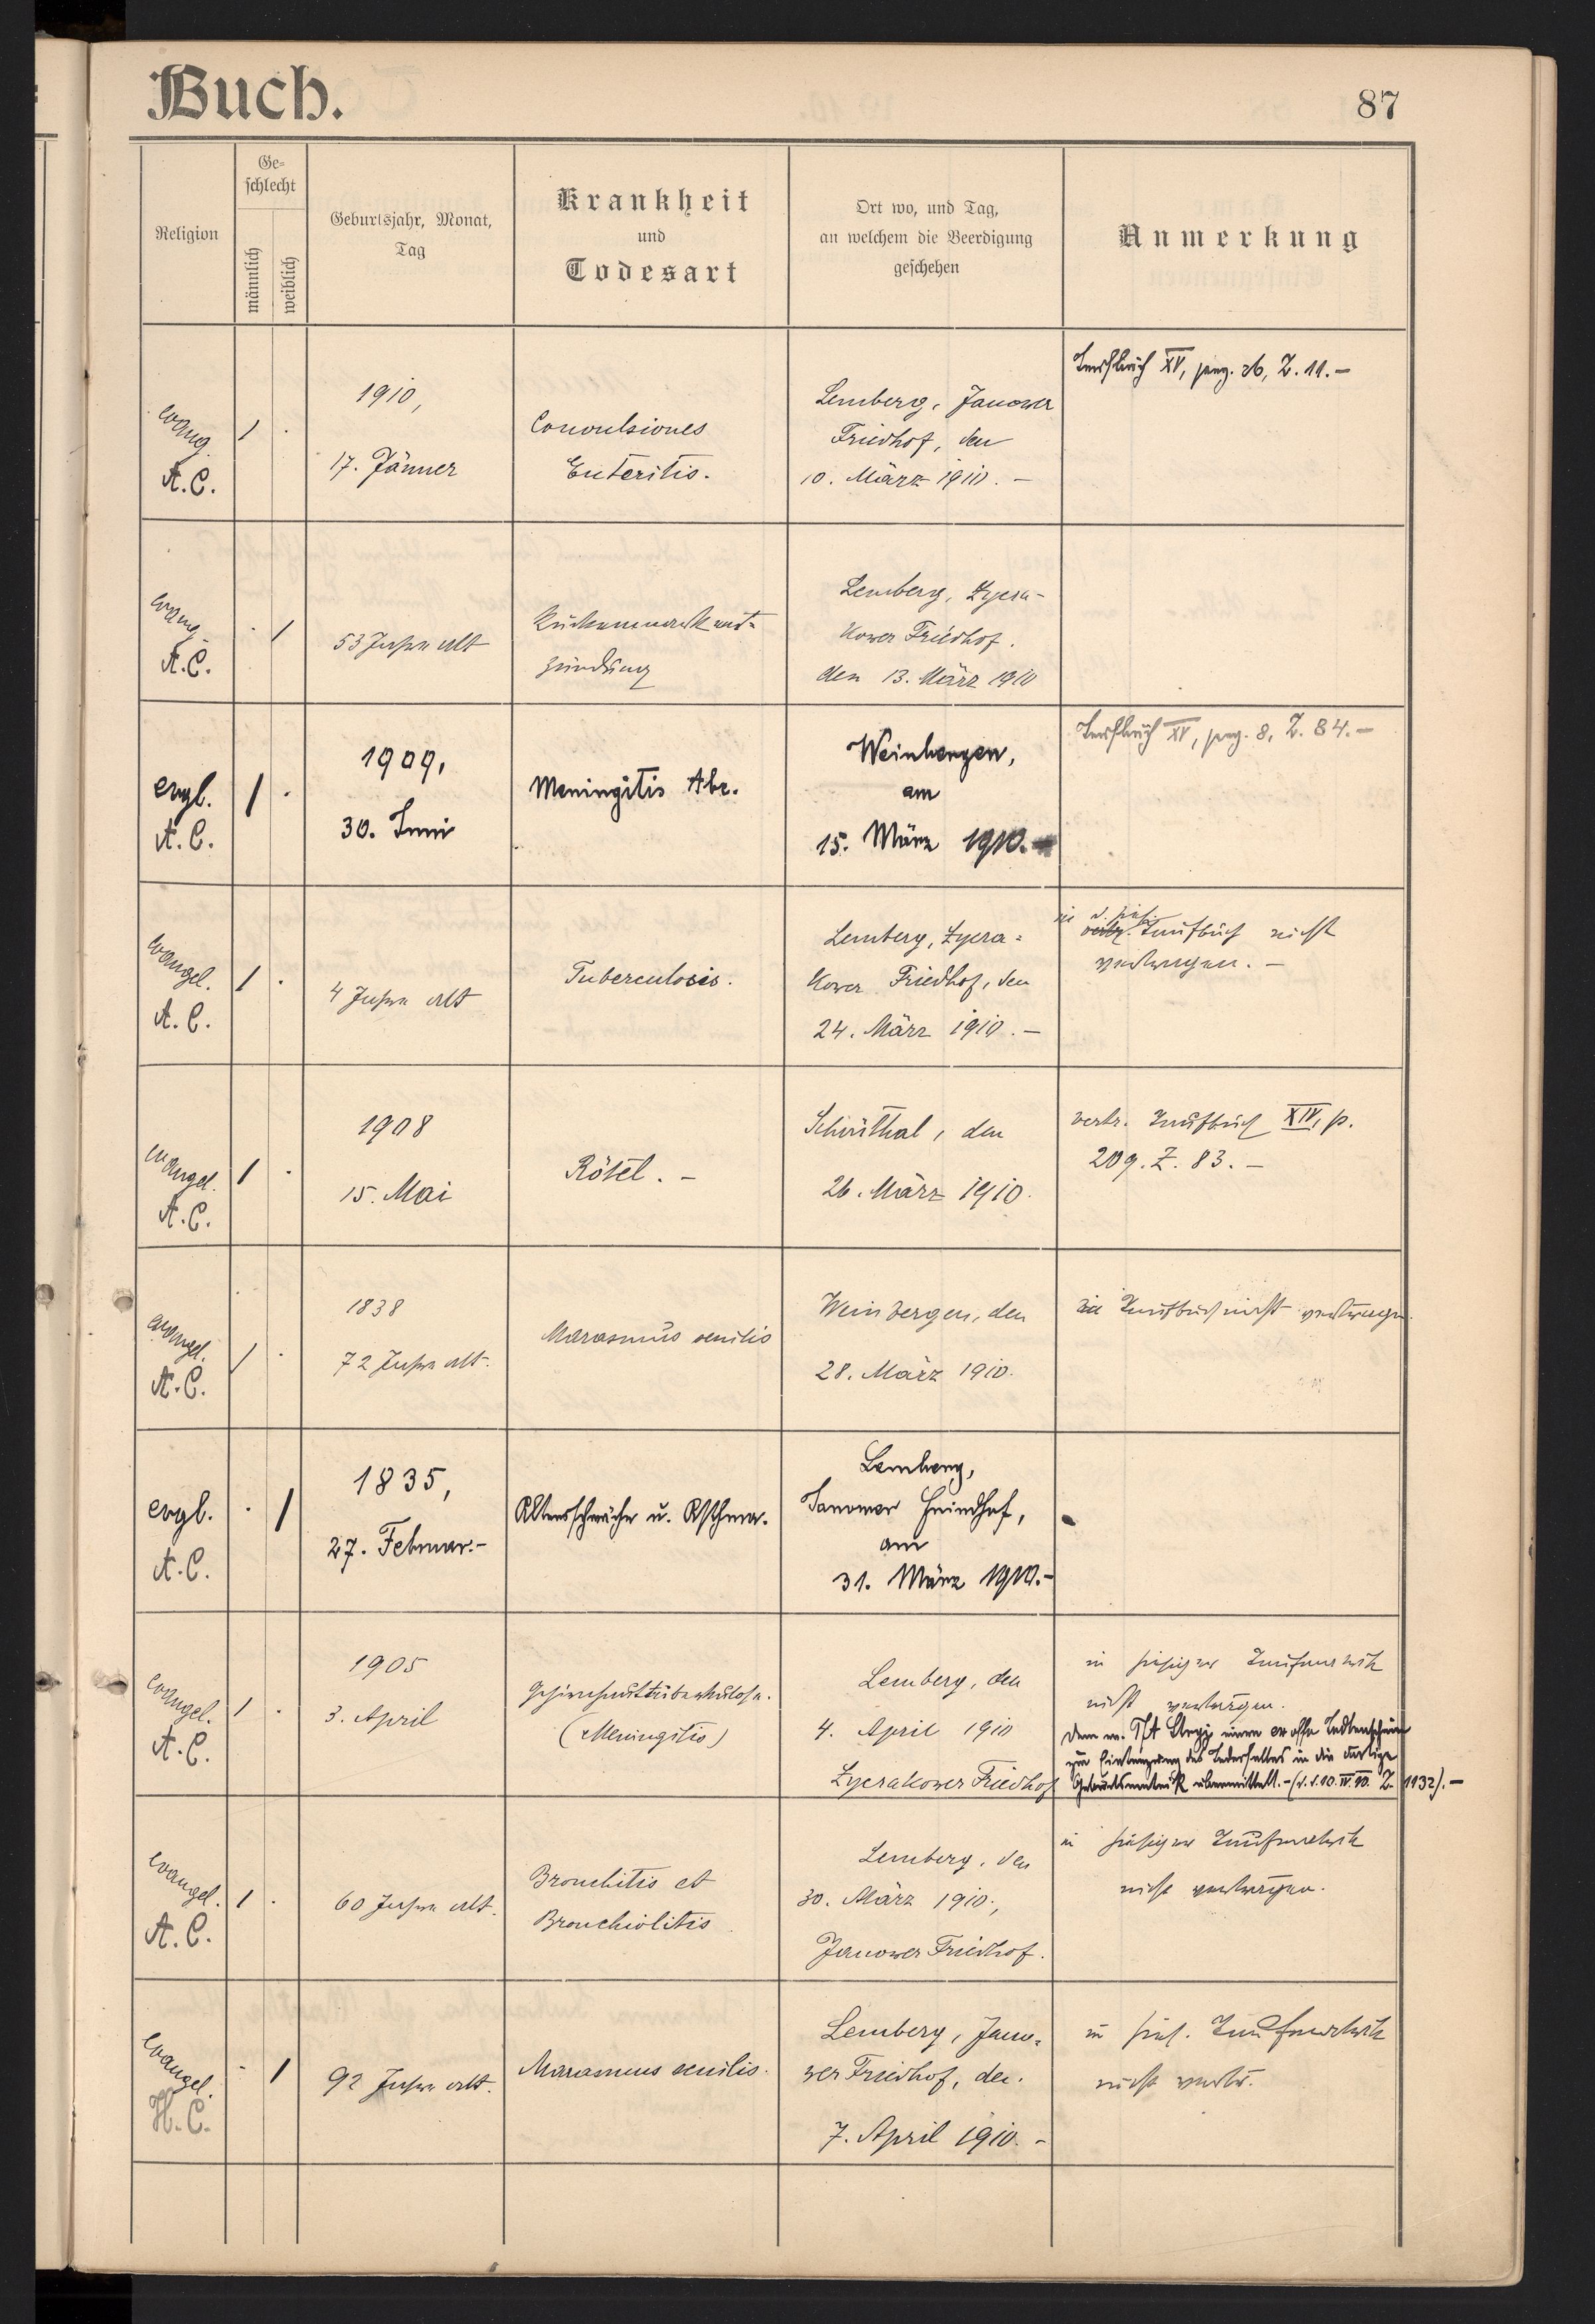 Buch.
87
Religion
Ge-
schlecht
männlich
weiblich
Geburtsjahr, Monat,
Tag
Krankheit
und
Todesart
Ort wo, und Tag,
an welchem die Beerdigung
geschehen
Anmerkung
evang.
A.C.
1 .
1910,
17. Jänner
Convulsiones
Enteritis.
Lemberg, Janower
Friedhof, den
10. März 1910. –
Taufbuch XV, pag. 26, Z. 11. –
evang.
A.C.
. 1
53 Jahre alt
Rückenmarkent-
zündung
Lemberg, Łycza-
kower Friedhof.
den 13. März 1910
evgl.
A.C.
1 .
1909,
30. Juni
Meningitis
Weinbergen,
am
15. März 1910. –
Taufbuch XV, pag. 8, Z. 84. –
evangel.
A.C.
1 .
4 Jahre alt
Tuberculosis.
Lemberg, Łycza-
kower Friedhof, den
24. März 1910. –
in d. hies.
Taufbuch nicht
vertragen. –
evangel.
A.C.
1 .
1908
15. Mai
Rötel. –
Schönthal, den
26. März 1910.
vertr. Taufbuch XIV, p.
209. Z. 83. –
evangel.
A.C.
1 .
1838
72 Jahre alt.
Marasmus senilis
Weinbergen, den
28. März 1910.
im Taufbuch nicht
evgl.
A.C.
. 1
1835,
27. Februar. –
Altersschwäche u. Asthma.
Lemberg,
Janower Friedhof,
am
31. März 1910. –
evangel.
A.C.
1 .
1905
3. April
Gehirnhauttuberkulose.
(Meningitis)
Lemberg, den
4. April 1910
Łyczakower Friedhof
in hiesiger Taufmatrik
nicht
Dem ev. Pf. A. Stryj einen ex offo Todtenschein
zur Eintragung des Todesfalles in die dortige
Geburtsmatrik übermittelt. – (d. d. 10. IV. 10. Z. 1132). –
evangel.
A.C.
1 .
60 Jahre alt.
Bronchitis et
Bronchiolitis
Lemberg, den
30. März 1910.,
Janower Friedhof.
in hiesiger Taufmatrik
nicht
evangel.
H.C.
- 1
92 Jahre alt.
Marasmus senilis.
Lemberg, Jano-
wer Friedhof, den
7. April 1910. –
in hies. Taufmatrik
nicht